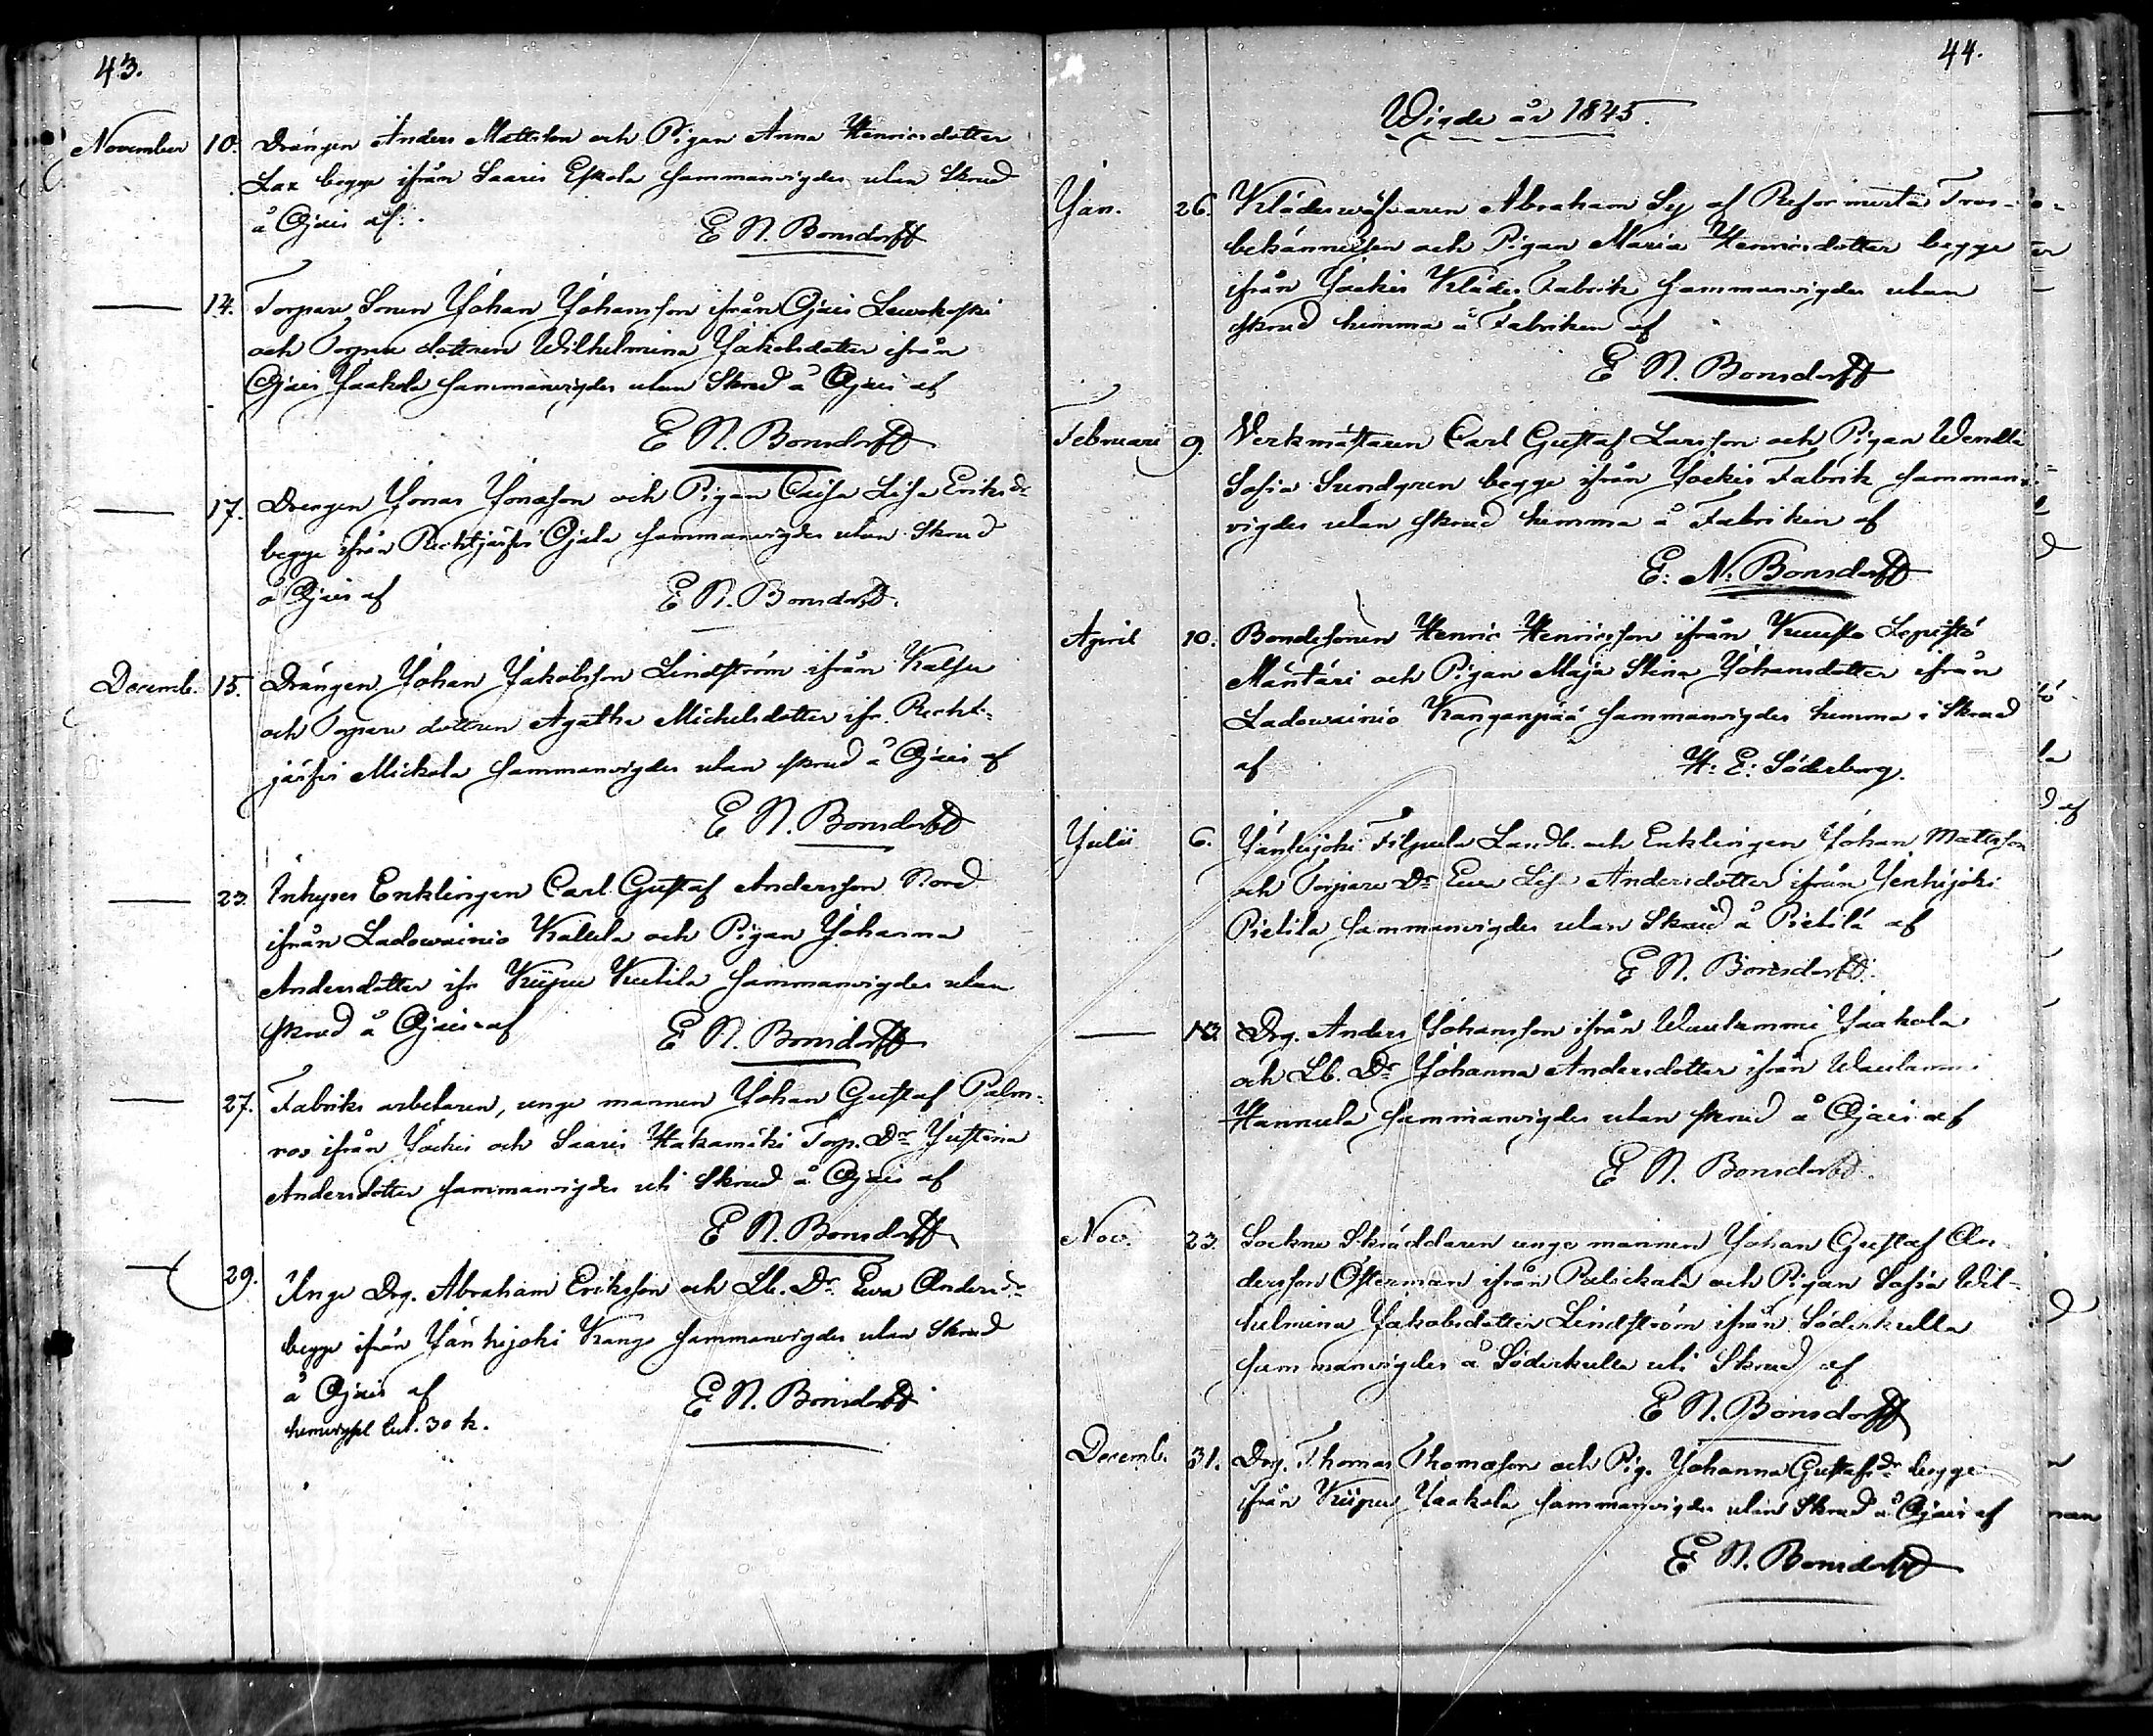 43.
November 10. Drängen Anders Mattsson och Pigan Anna Henricsdotter
Lax begge ifrån Saaris Eskola sammanvigdes utan Skrud
å Ojais af.
E N. Bonsdorff
— 14. Torpare Sonen Johan Johansson ifrån Ojais Lewokoski
och Torpare dottren Wilhelmina Jakobsdotter ifrån
Ojais Jaakola sammanvigdes utan Skrud å Ojais af
E N. Bonsdorff
— 17. Drengen Jonas Jonasson och Pigan Caisa Lisa Eriksdr
begge ifrån Rechtijärfvi Ojala sammanvigdes utan Skrud
å Ojais af E N. Bonsdorff.
Decemb. 15. Drängen Johan Jakobsson Lindström ifrån Kalsu
och Torpare dottren Agatha Michelsdotter ifr. Rechti-
järfvi Mickola sammanvigdes utan skrud å Ojais af
E N. Bonsdorff
— 23. Inhyses Enklingen Carl Gustaf Andersson Nord
ifrån Ladowainio Kallela och Pigan Johanna
Andersdotter ifr Kiipu Kutila sammanvigdes utan
skrud å Ojais af E N. Bonsdorff
— 27. Fabriks arbetaren, unge mannen Johan Gustaf Palm-
ros ifrån Jockis och Saaris Hakamäki Torp. Dr Justina
Andersdotter sammanvigdes uti Skrud å Ojais af
E N. Bonsdorff
— 29. Unge Drg. Abraham Eriksson och Lb. Dr Ewa Andersdr
begge ifrån Jänhijoki Kange sammanvigdes utan Skrud
å Ojais af E N. Bonsdorff
30 k.
44.
Wigde år 1845.
Jan. 26. Klädeswäfvaren Abraham Ly af Reformerta Tros-
bekännelsen och Pigan Maria Henricsdotter begge
ifrån Jockis Klädes Fabrik sammanvigdes utan
skrud hemma å Fabriken af
E N. Bonsdorff
Februari 9. Verkmästaren Carl Gustaf Larsson och Pigan Wendla
Sofia Sundgren begge ifrån Jockis Fabrik samman-
vigdes utan skrud hemma å Fabriken af
E: N: Bonsdorff
April 10. Bondesonen Henric Henricsson ifrån Kuusto Lepistö
Mäntäri och Pigan Maja Stina Johansdotter ifrån
Ladowainio Kanganpää sammanvigdes hemma i Skrud
af H: E: Söderberg.
Julii 6. Jänhijoki Filpula Landb. och Enklingen Johan Mattsson
och Torpare Dr Ewa Lisa Andersdotter ifrån Jenhijoki
Pietila sammanvigdes utan Skrud å Pietilä af
E N. Bonsdorff
— 13. Drg. Anders Johansson ifrån Waulammi Jaakola
och Lb. Dr Johanna Andersdotter ifrån Waulammi
Hannula sammanvigdes utan skrud å Ojais af
E N. Bonsdorff.
Nov. 23. Sockne Skräddaren unge mannen Johan Gustaf An-
dersson Österman ifrån Palickala och Pigan Sofia Wil-
helmina Jakobsdotter Lindström ifrån Söderkulla
sammanvigdes å Söderkulla uti Skrud af
E N. Bonsdorff
Decemb. 31. Drg. Thomas Thomasson och Pig. Johanna Gustafsdr begge
ifrån Kiipu Jaakola sammanvigdes utan Skrud å Ojais af
E N. Bonsdorff